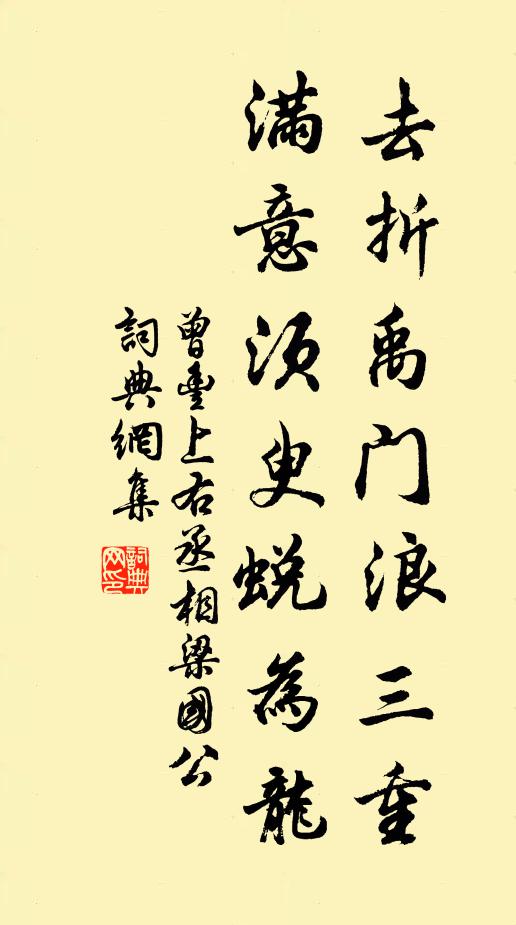 去折禹门浪三重
满意须臾蜕為龍
曾豐上右丞相梁國公
詞典網集
詞典网印